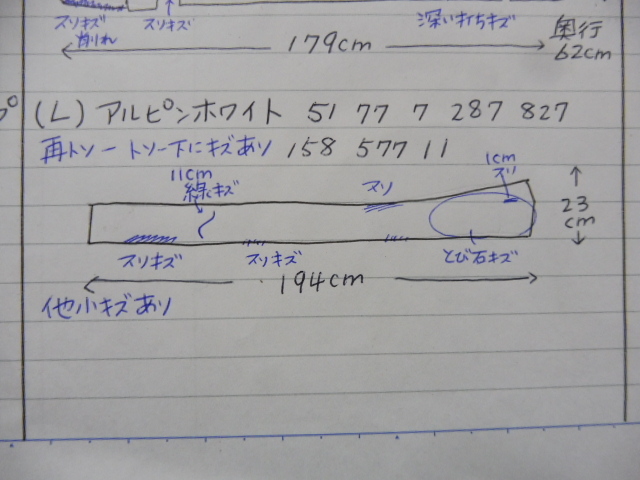 スリキズ 削れ
スリキズ
深い打ちキズ
奥行
62cm
179cm
プ (L) アルピンホワイト 51 77 7 287 827
再トソー トソー下にキズあり 158 577 11
11cm
線キズ
スリ
1cm
スリ
23
cm
スリキズ
スリキズ
とび石キズ
194cm
他小キズあり